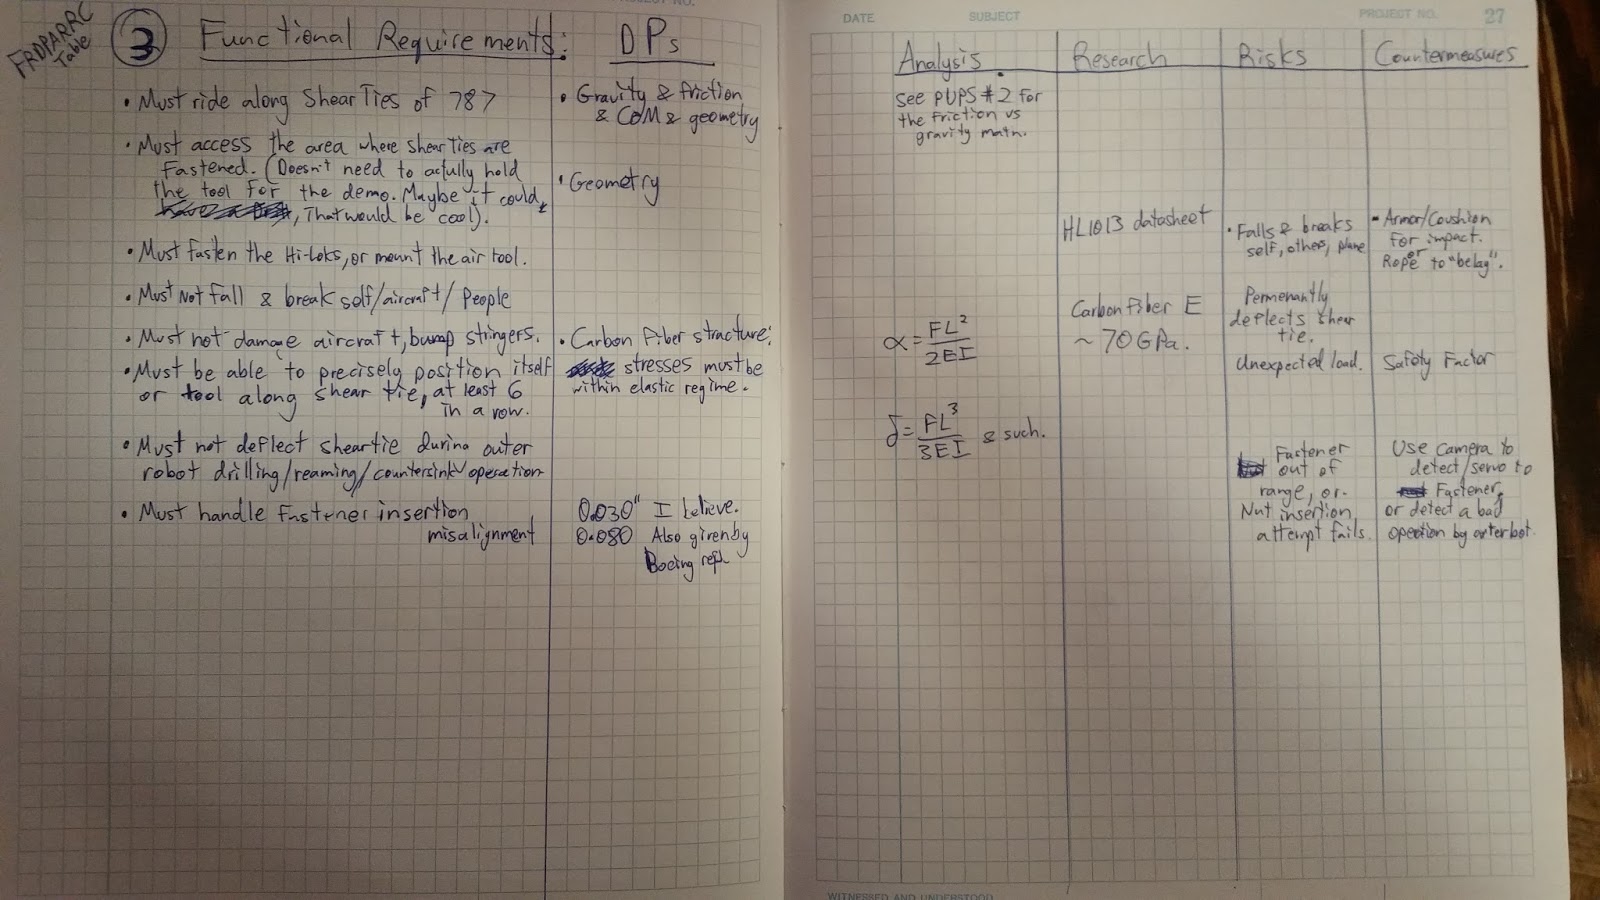 FRDPARRC
Table
3
Functional Requirements:
DPs
• Must ride along Shear Ties of 787
• Gravity & friction
& CoM & geometry
• Must access the area where shear ties are
fastened. (Doesn't need to actully hold
the tool for the demo. Maybe it could,
, That would be cool).
• Geometry
• Must fasten the Hi-Loks, or mount the air tool.
• Must Not fall & break self/aircraft/people
• Must not damage aircraft, bump stringers.
• Carbon Fiber structure;
stresses must be
within elastic regime.
• Must be able to precisely position itself
or tool along shear tie, at least 6
in a row.
• Must not deflect shear tie during outer
robot drilling/reaming/countersink operation
• Must handle fastener insertion
misalignment
0.030" I believe.
0.080 Also given by
Boeing rep.
DATE
SUBJECT
PROJECT NO.
27
Analysis
Research
Risks
Countermeasures
See PUPS #2 for
the friction vs
gravity math.
HL1013 datasheet
• Falls & breaks
self, others, plane
- Armor/Coushion
for impact.
or
Rope to "belay".
α = FL²/2EI
Carbon fiber E
~ 70 GPa.
Permenantly
deflects shear
tie.
Unexpected load.
Safety Factor
δ = FL³/3EI & such.
Fastener
out of
range, or
Nut insertion
attempt fails.
Use camera to
detect/servo to
Fastener,
or detect a bad
operation by outer bot.
WITNESSED AND UNDERSTOOD